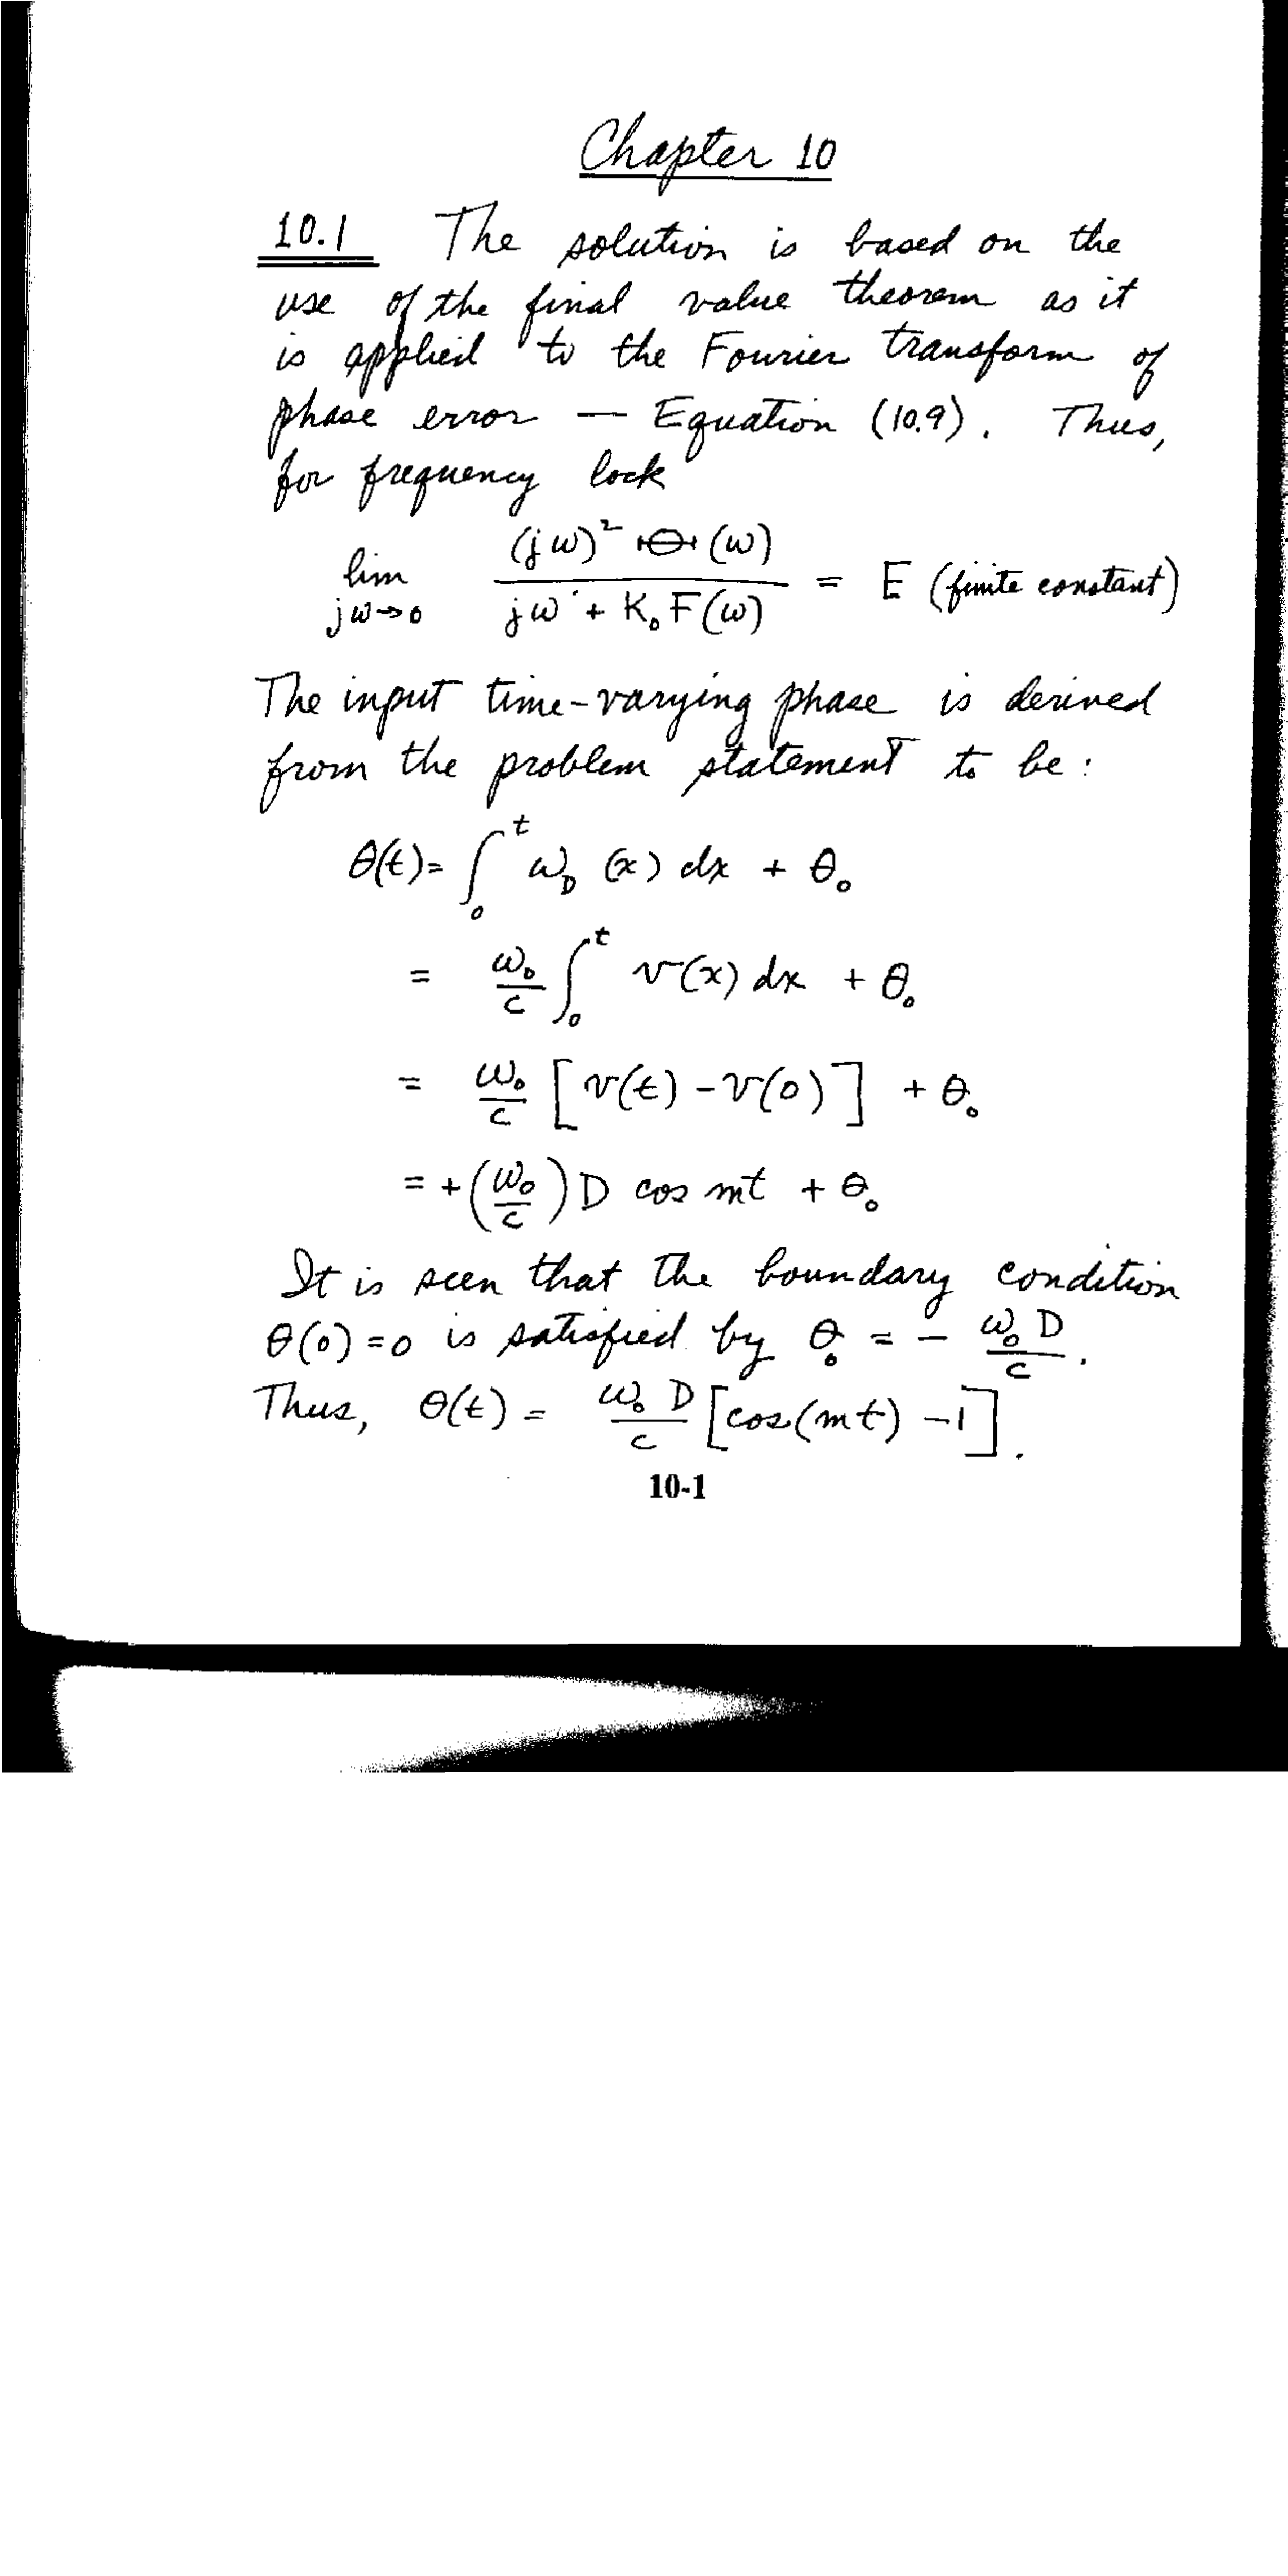 Chapter 10
10.1 The solution is based on the
use of the final value theorem as it
is applied to the Fourier transform of
phase error — Equation (10.9). Thus,
for frequency lock
lim jω→0 (jω)² Θ(ω) / (jω + K₀F(ω)) = E (finite constant)
The input time-varying phase is derived
from the problem statement to be:
θ(t) = ∫₀ᵗ ω_D (x) dx + θ₀
= ω₀/c ∫₀ᵗ v(x) dx + θ₀
= ω₀/c [v(t) - v(0)] + θ₀
= + (ω₀/c) D cos mt + θ₀
It is seen that the boundary condition
θ(0) = 0 is satisfied by θ₀ = - ω₀D/c.
Thus, θ(t) = ω₀D/c [cos(mt) - 1].
10-1